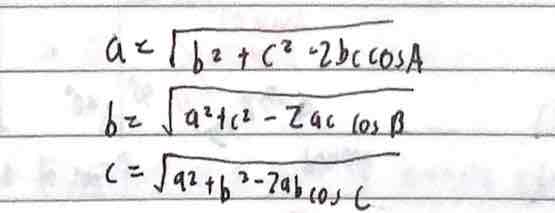 a = √(b² + c² - 2bc cosA)
b = √(a² + c² - 2ac cos B)
c = √(a² + b² - 2ab cos C)